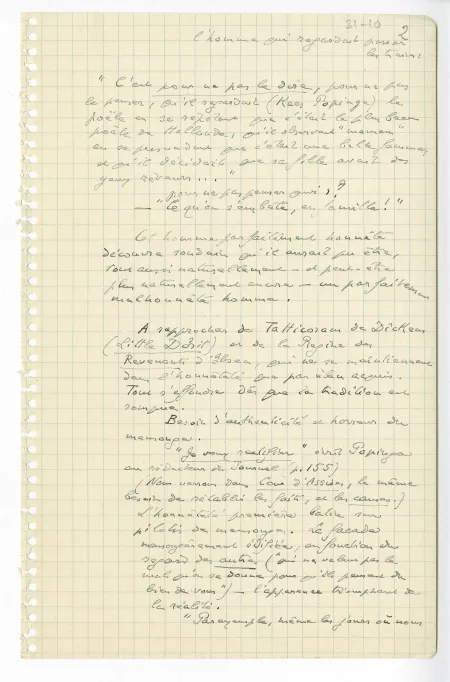 31-10
2
l'homme qui regardait passer
les trains:
"C'est pour ne pas le dire, pour ne pas
le penser, qu'il regardait (Kees Popinga) le
poële en se répétant que c'était le plus beau
poële de Hollande, qu'il observait "maman"
en se persuadant que c'était une belle femme
et qu'il décidait que sa fille avait des
yeux rêveurs..."
pour ne pas penser quoi?
— "Ce qu'on s'embête, en famille!"
Cet homme parfaitement honnête
découvre soudain qu'il aurait pu être,
tout aussi naturellement - et peut-être
plus naturellement encore - un parfaitement
malhonnête homme.
A rapprocher de Tatticoram de Dickens
(Little Dorit) et de la Régine des
Revenants d'Ibsen, qui ne se maintiennent
dans l'honnêteté que par élan acquis.
Tout s'effondre dès que la tradition est
rompue.
Besoin d'authenticité et horreur du
mensonge.
"Je vous rectifier" écrit Popinga
au rédacteur du Journal (p. 155)
(Nous verrons dans Cour d'Assises, le même
besoin de rétablir les faits, et les causes.)
L'honnêteté première bâtie sur
pilotis de mensonge. La façade
mensongèrement édifiée, en fonction du
regard des autres ("qui ne valent pas le
mal qu'on se donne pour qu'ils pensent du
bien de vous") - l'apparence triomphant de
la réalité.
"Par exemple, même les jours où nous